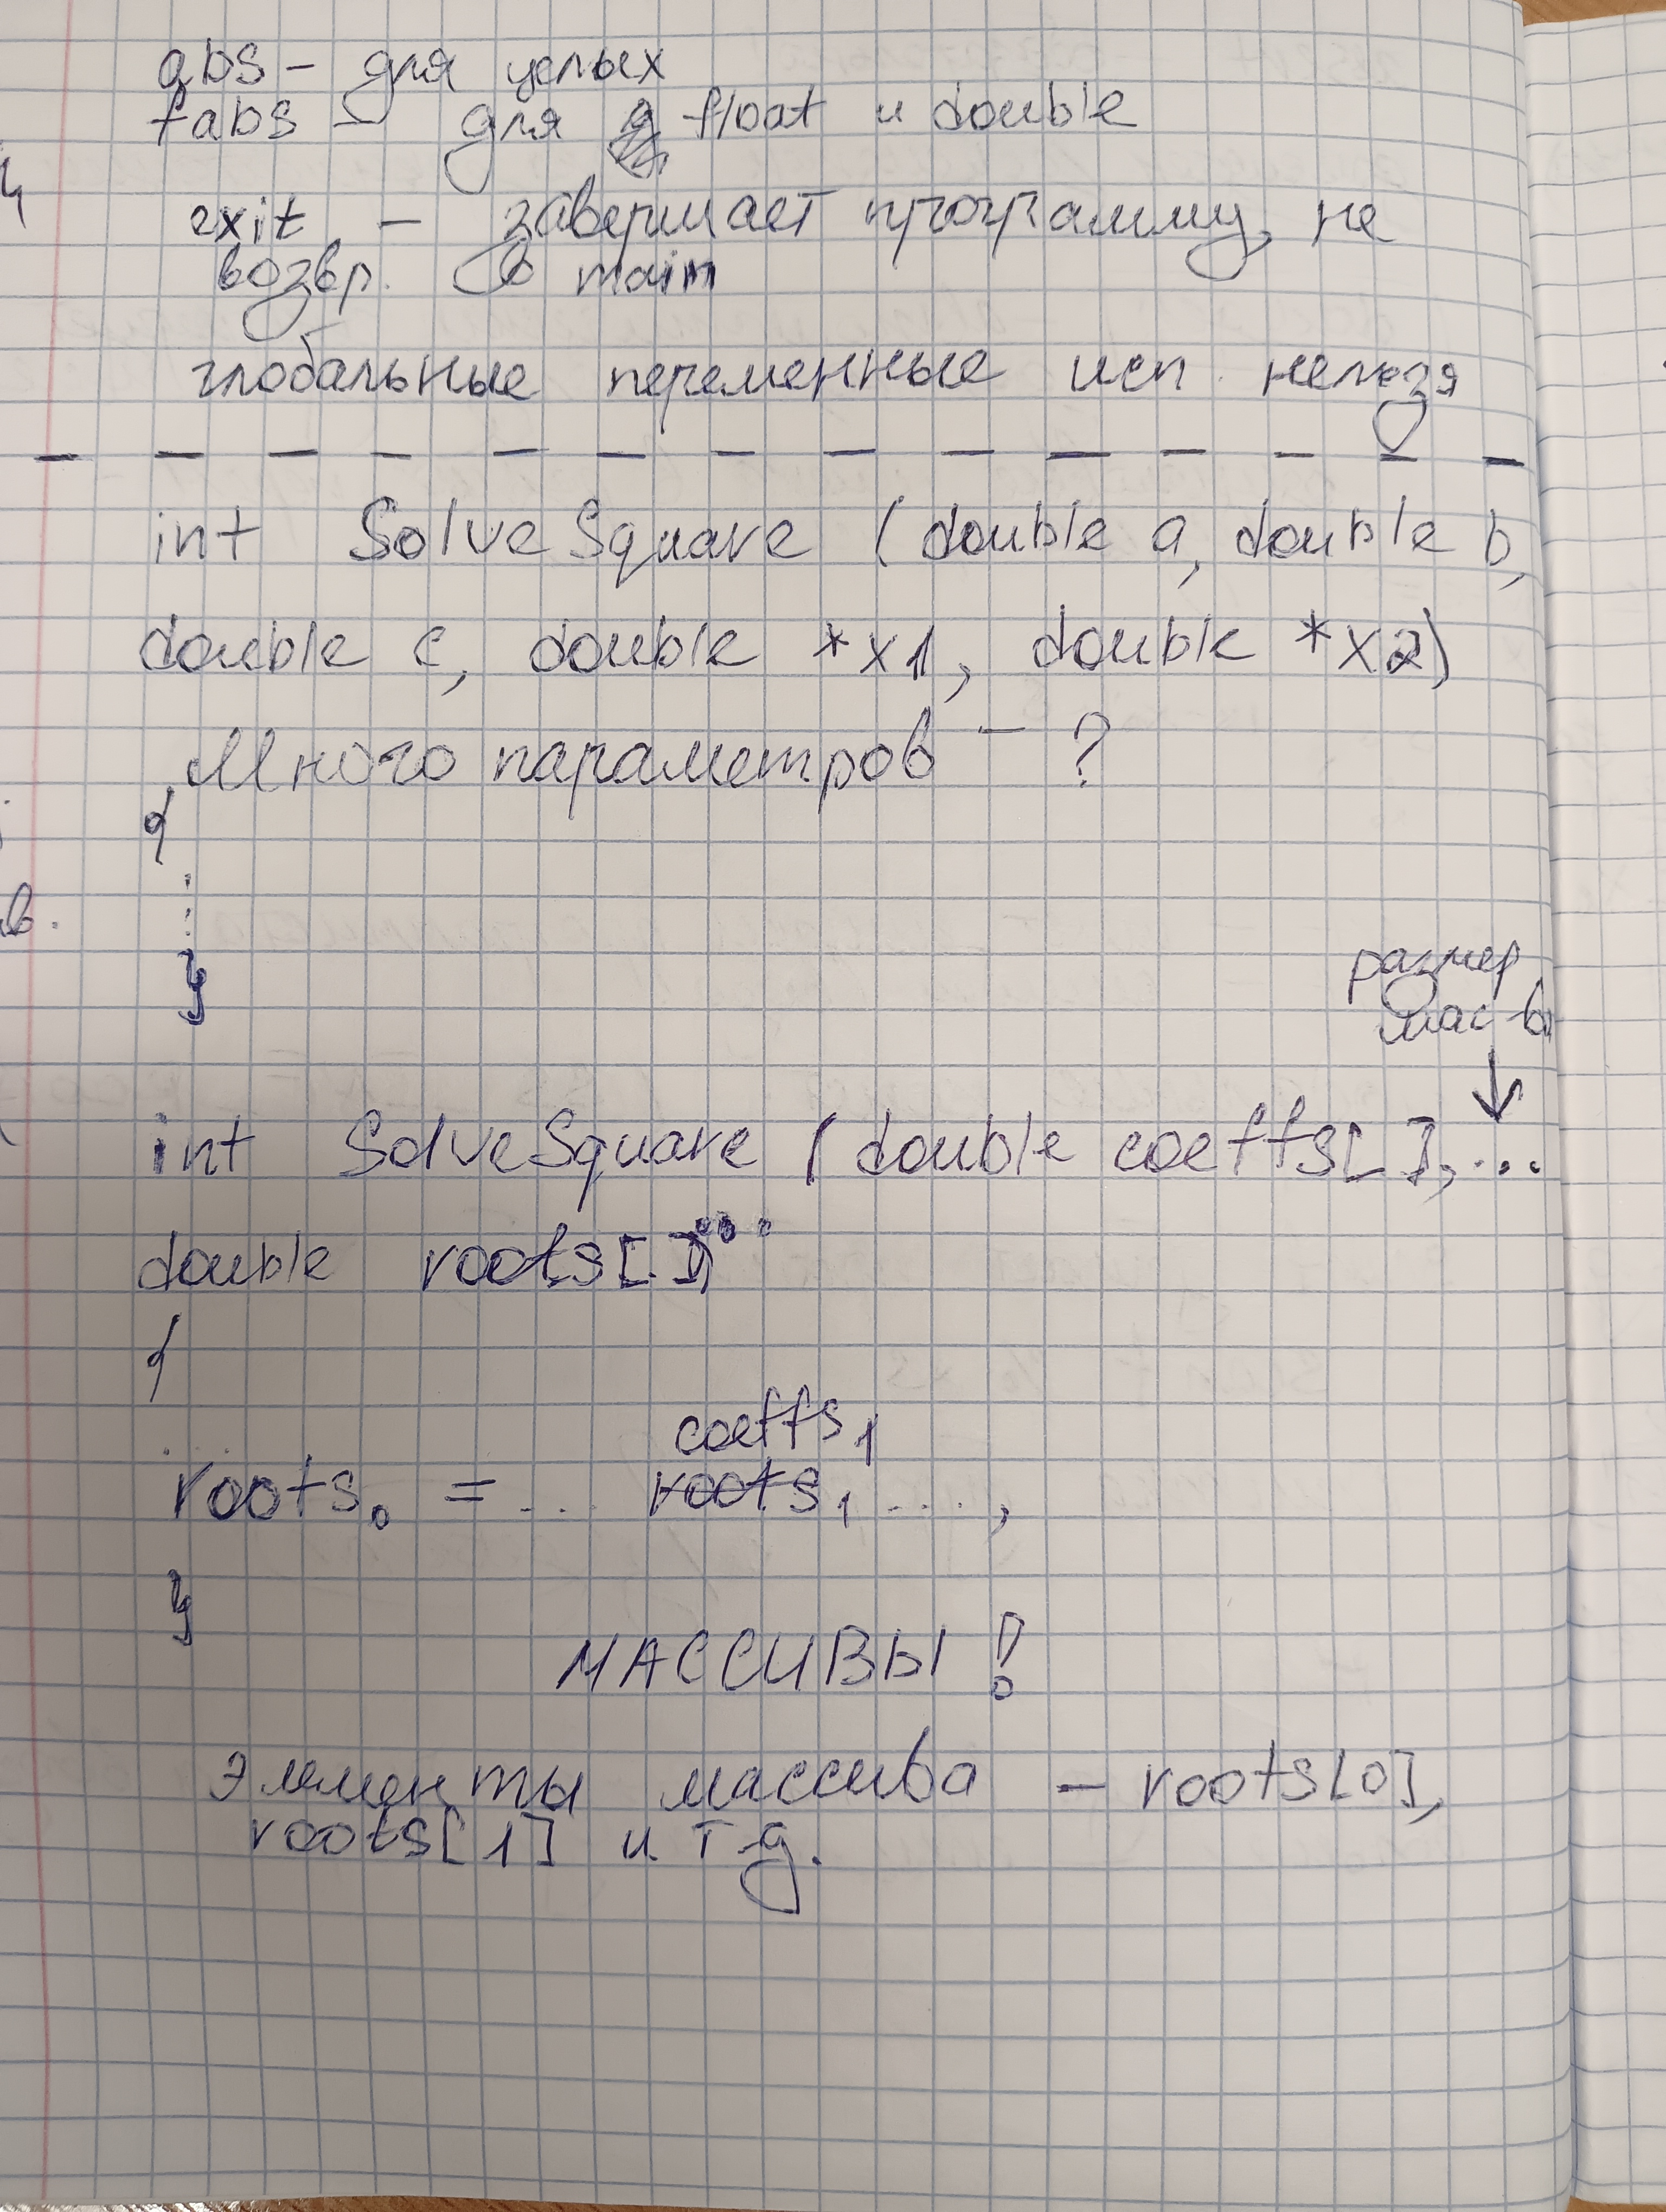 abs – для целых
fabs – для float и double
exit – завершает программу, не
возвр. в main
глобальные переменные исп. нельзя
int SolveSquare (double a, double b,
double c, double *x1, double *x2)
Много параметров – ?
{
⋮
}
размер
мас-ва
int SolveSquare (double coeffs[ ], ...
double roots[ ]) ...
{
coeffs₁
roots₀ = ... roots₁ ... ,
}
МАССИВЫ!
Элементы массива – roots[0],
roots[1] и т.д.